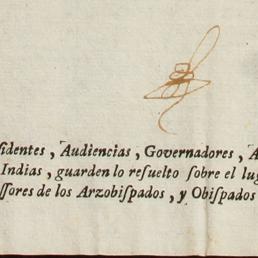 sidentes, Audiencias, Governadores, A
Indias, guarden lo resuelto sobre el lug
ssores de los Arzobispados, y Obispados